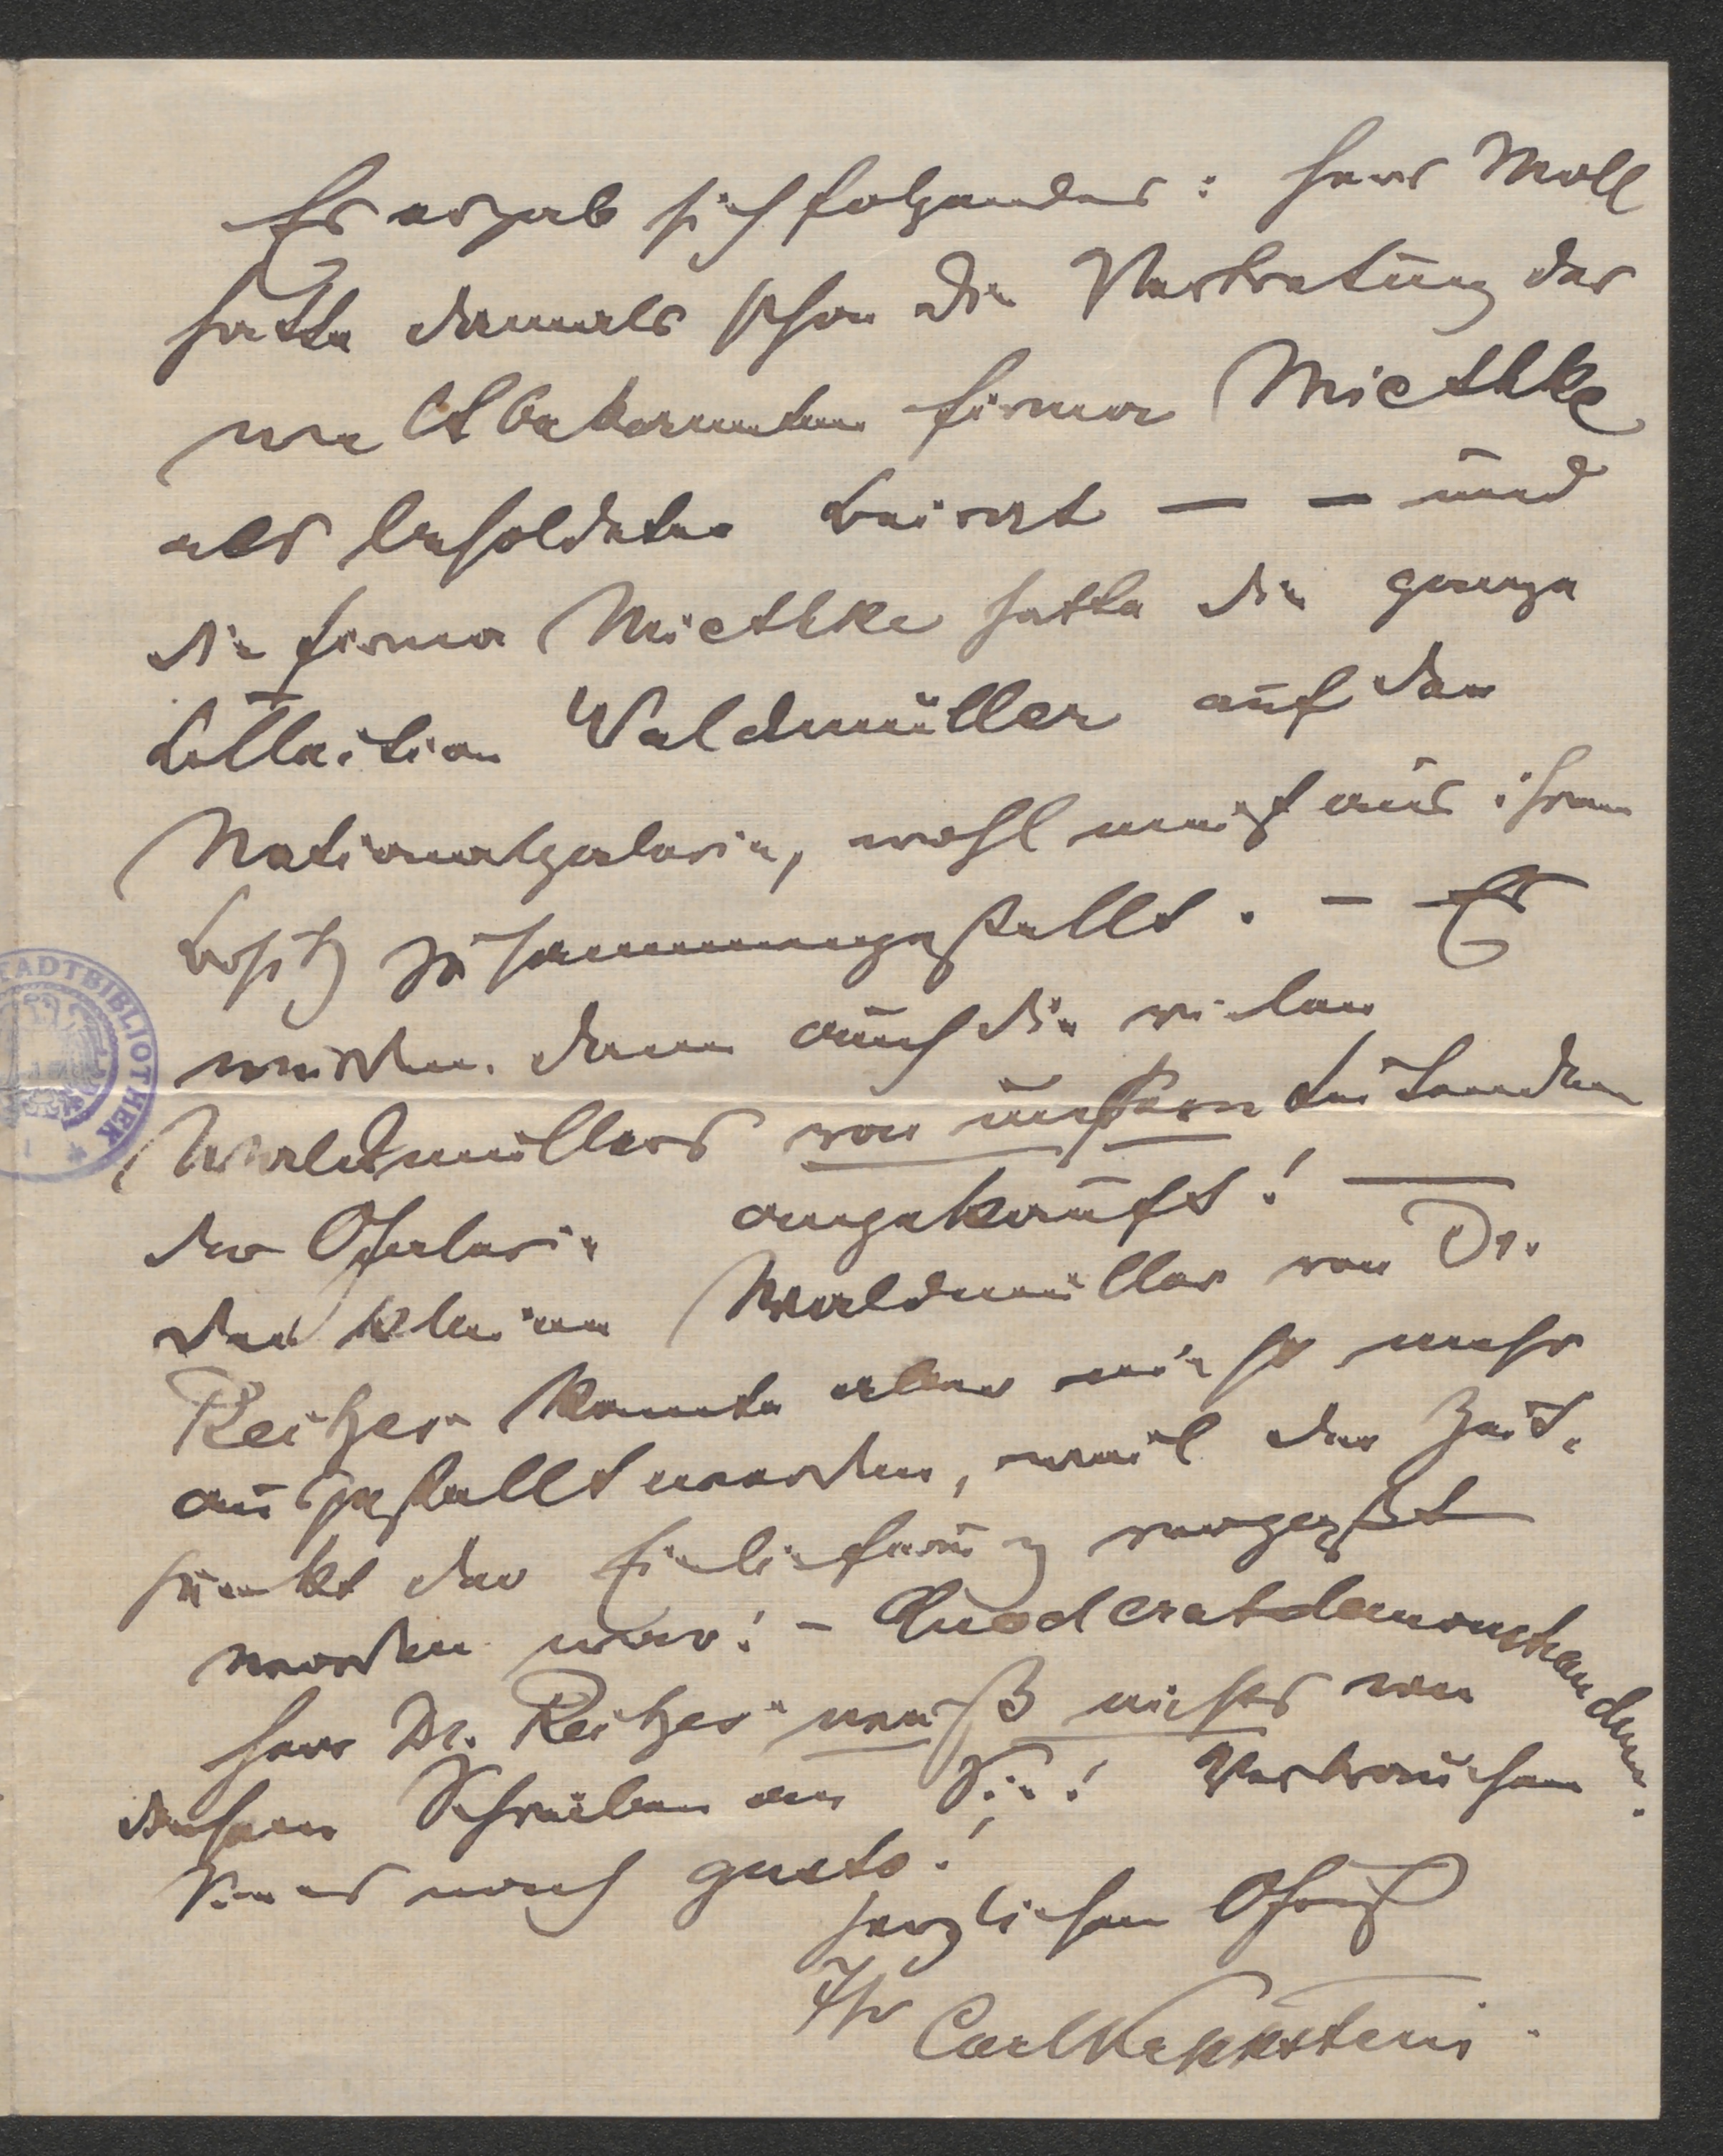 Es ergab sich folgendes: Herr Moll
hatte damals schon die Vertretung der
weltbekannten Firma Miethke
als besoldeter Beirat — — und
die Firma Miethke hatte die ganze
Collection Waldmüller auf der
Nationalgalerie, wohl meist aus ihrem
Besitz zusammengestellt. — Es
wurden dann auch die vielen
Waldmüllers von unserm leitenden
der Galerie angekauft! —
der kleine Waldmüller von Dr.
Reitzes konnte aber nicht mehr
ausgestellt werden, weil der Zeit-
punkt der Einlieferung vergeßt
worden war! – Quod erat demonstrandum.
Herr Dr. Reitzes weiß nichts von
diesem Schreiben an Sie! Verbrauchen
Sie es nach gusto!
Herzlichen Gruß
Ihr Carl
STADTBIBLIOTHEK